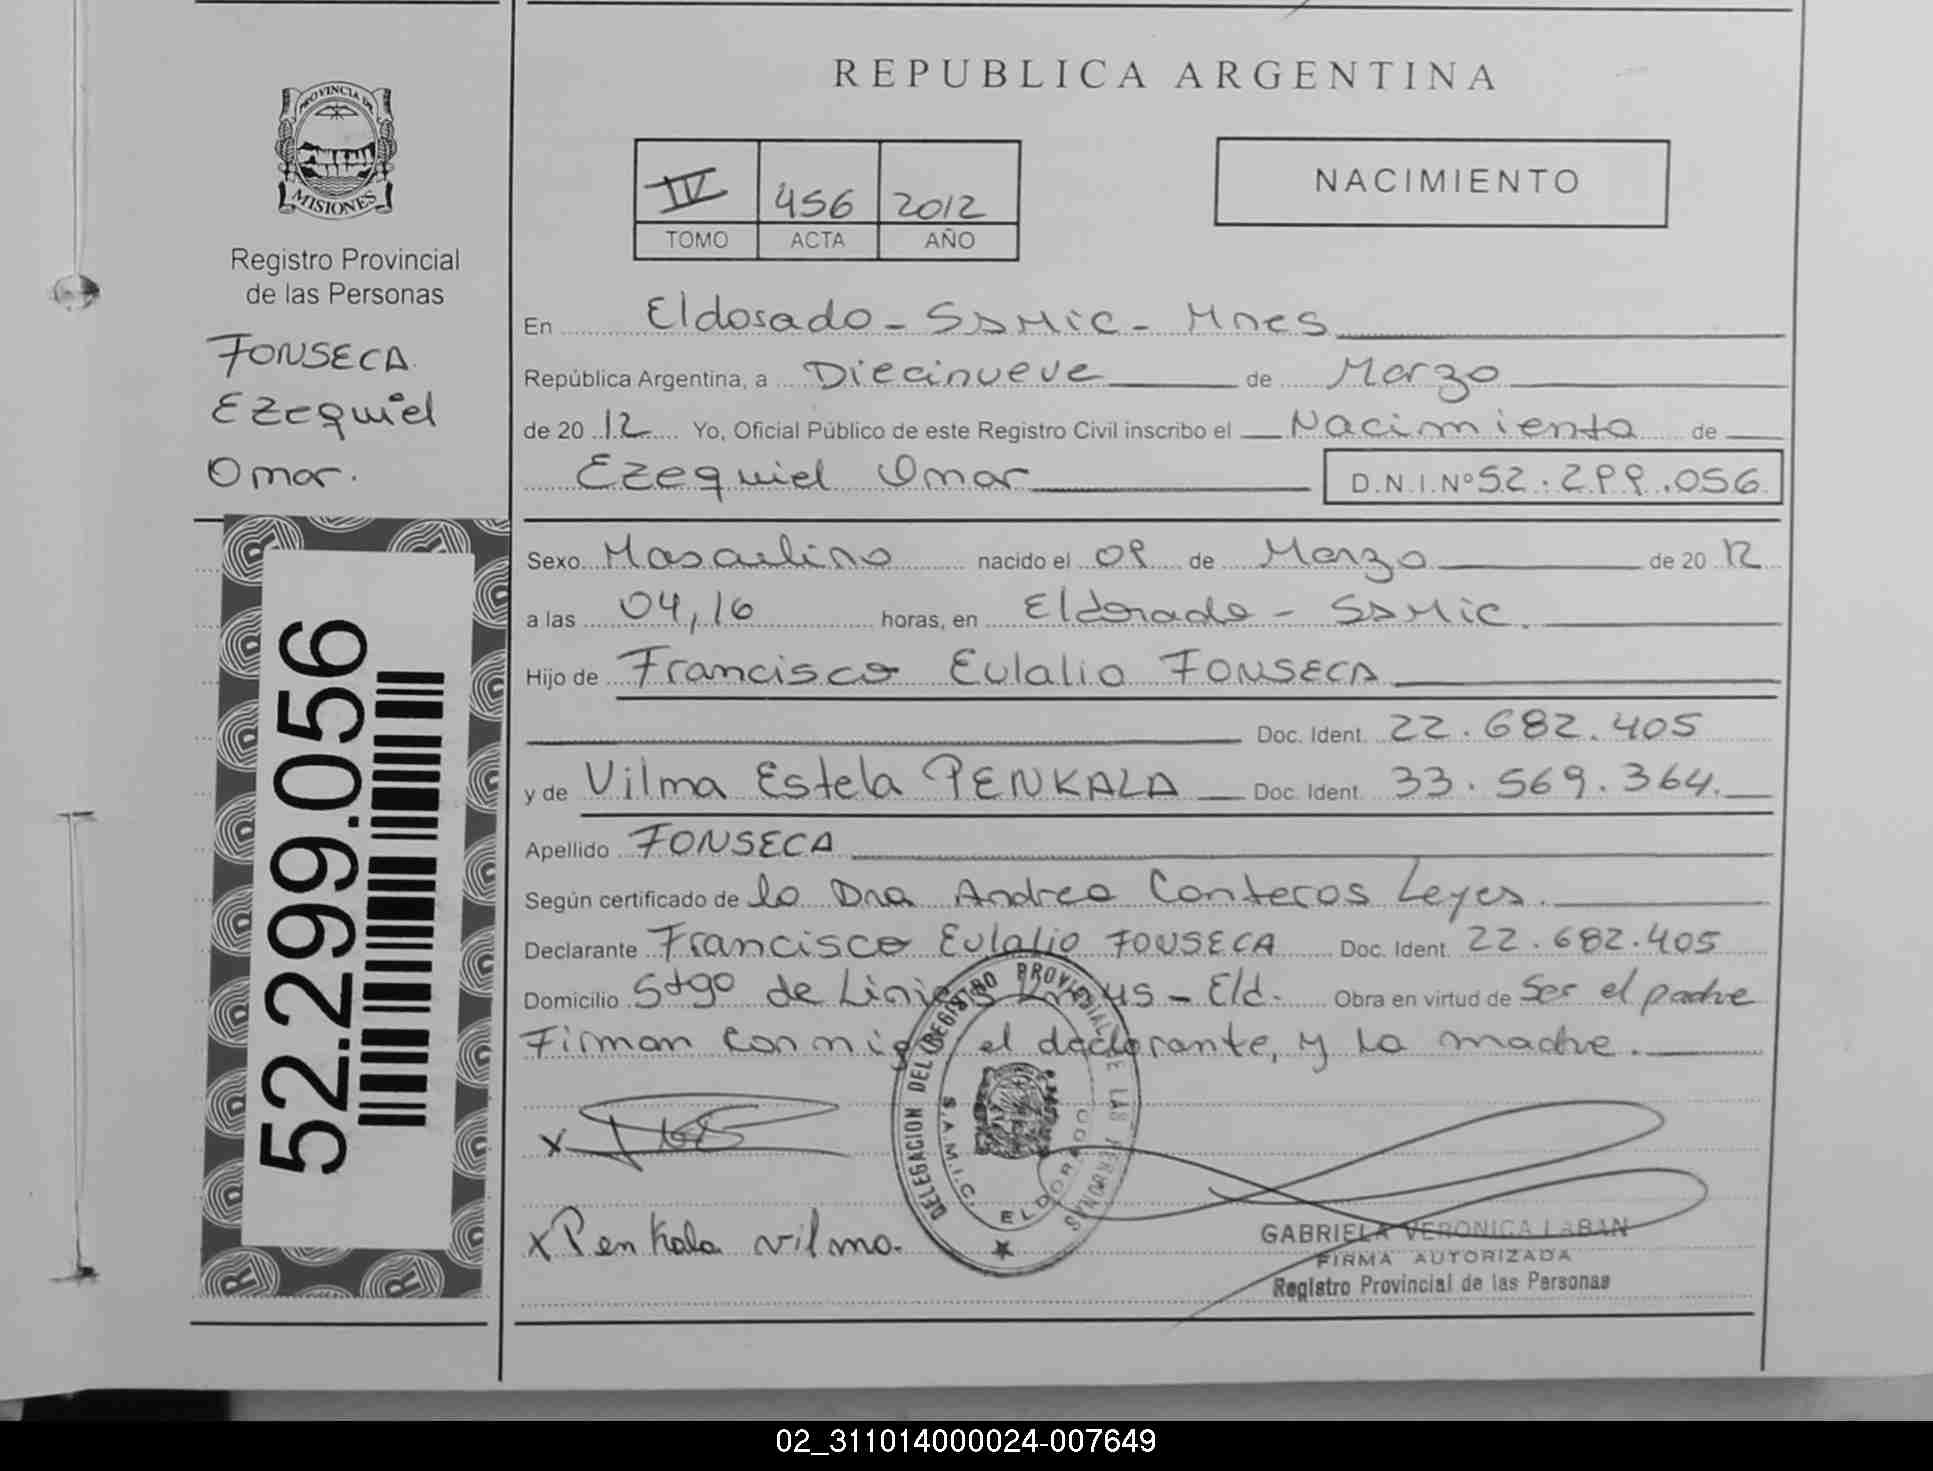 PROVINCIA DE
MISIONES
Registro Provincial
de las Personas
FONSECA
Ezequiel
Omar.
52.299.056
REPUBLICA ARGENTINA
IV 456 2012
TOMO ACTA AÑO
NACIMIENTO
En Eldorado - SAMIC - Mnes
República Argentina, a Diecinueve de Marzo
de 2012 Yo, Oficial Público de este Registro Civil inscribo el Nacimiento de
Ezequiel Omar D.N.I.Nº 52.299.056
Sexo Masculino nacido el 09 de Marzo de 2012
a las 04,16 horas, en Eldorado - SAMIC.
Hijo de Francisco Eulalio FONSECA
Doc. Ident. 22.682.405
y de Vilma Estela PENKALA Doc. Ident. 33.569.364.
Apellido FONSECA
Según certificado de la Dra Andrea Conteros Leyes.
Declarante Francisco Eulalio FONSECA Doc. Ident. 22.682.405
Domicilio Stgo de Liniers - Eld. Obra en virtud de Ser el padre
Firman conmigo el declarante, y la madre.
x
x Penkala vilma.
DELEGACION DEL REGISTRO PROVINCIAL DE LAS PERSONAS
S.A.M.I.C. ELDORADO
GABRIELA VERONICA LABAN
FIRMA AUTORIZADA
Registro Provincial de las Personas
02_311014000024-007649